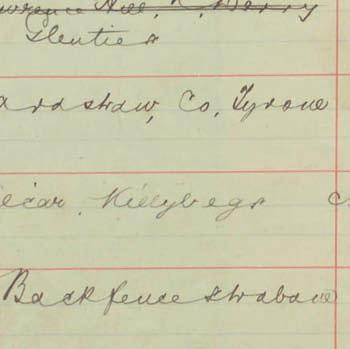 Hill, Derry
Glenties
ardshaw, Co, Tyrone
Killybegs
Backfence Strabane